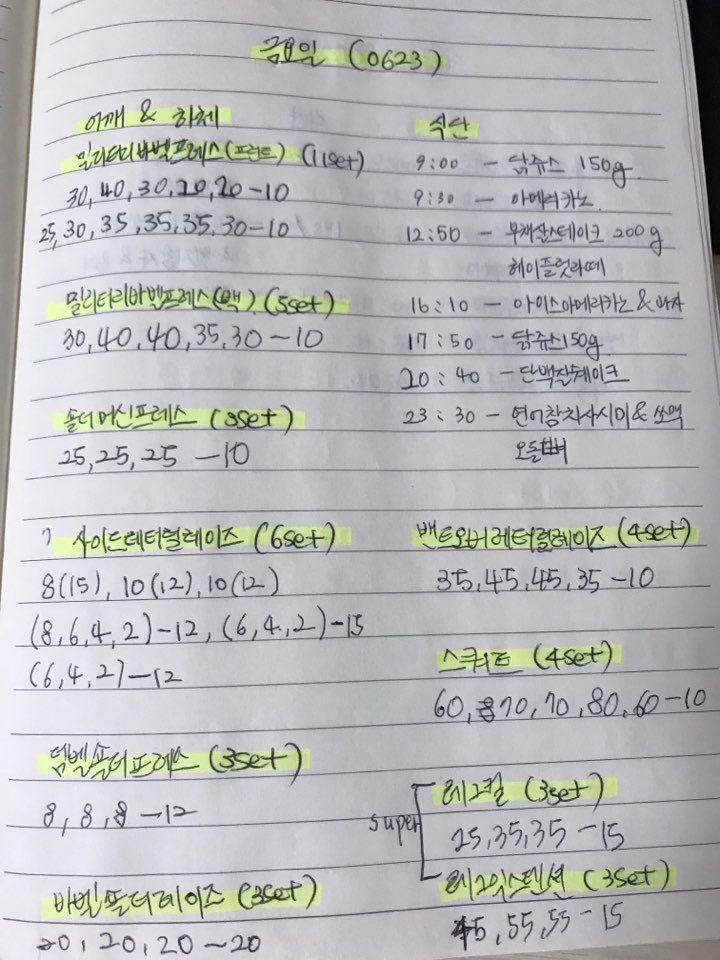 금요일 (0623)
어깨 & 하체
밀리터리바벨프레스(프런트) (11set)
30, 40, 30, 20, 20 - 10
25, 30, 35, 35, 35, 30 - 10
밀리터리바벨프레스(백) (5set)
30, 40, 40, 35, 30 - 10
숄더머신프레스 (3set)
25, 25, 25 - 10
식단
9:00 - 닭쥬스 150g
9:30 - 아메리카노
12:50 - 부채살스테이크 200g
헤이플럿라떼
16:10 - 아이스아메리카노 & 과자
17:50 - 닭쥬스150g
20:40 - 단백질쉐이크
23:30 - 연어참치사시미 & 쏘맥
오돌뼈
사이드레터럴레이즈 (6set)
8(15), 10(12), 10(12)
(8,6,4,2) - 12, (6,4,2) - 15
(6,4,2) - 12
덤벨숄더프레스 (3set)
8, 8, 8 - 12
바벨숄더레이즈 (3set)
20, 20, 20 ~ 20
밴트오버레터럴레이즈 (4set)
35, 45, 45, 35 - 10
스쿼트 (4set)
60, 70, 70, 80, 60 - 10
super
레그컬 (3set)
25, 35, 35 - 15
레그익스텐션 (3set)
45, 55, 55 - 15